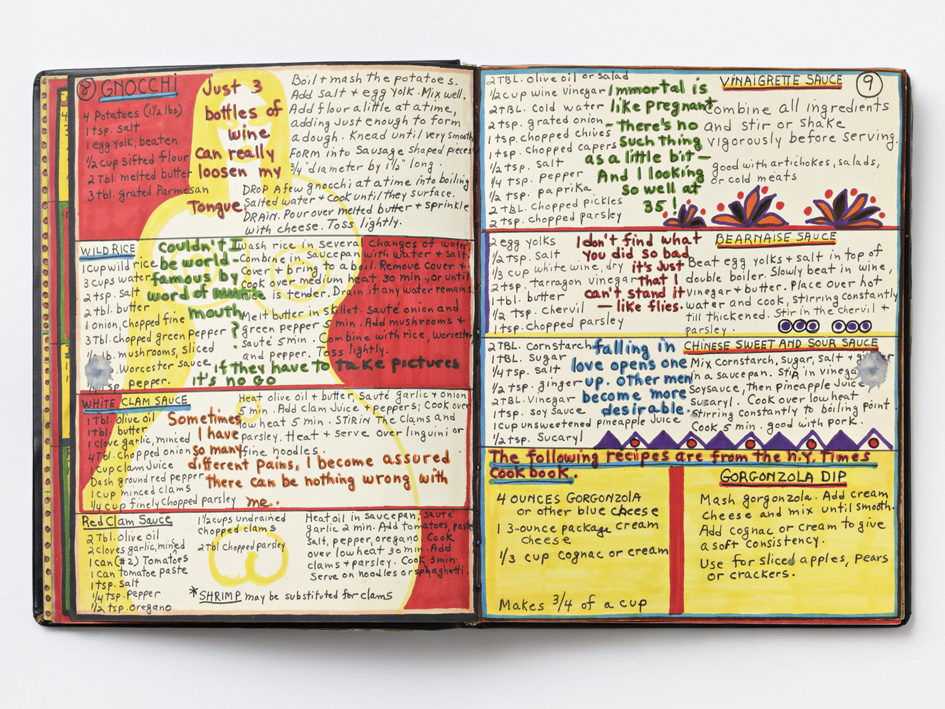 8 GNOCCHi
4 Potatoes (1½ lbs)
1 tsp. salt
1 egg yolk, beaten
½ cup sifted flour
2 Tbl. melted butter
3 tbl. grated Parmesan
Just 3
bottles of
wine
can really
loosen my
Tongue.
Boil + mash the potatoes.
Add salt + egg yolk. Mix well.
Add flour a little at a time,
adding just enough to form
a dough. Knead until very smooth
Form into Sausage shaped pieces
¾" diameter by 1½" long.
DROP A few gnocchi at a time into boiling
Salted water + cook until they surface.
DRAIN. Pour over melted butter + sprinkle
with cheese. Toss lightly.
WILD RICE
1 cup wild rice
3 cups water
2 tsp. salt
2 tbl. butter
1 onion, chopped fine
3 Tbl. chopped green pepper
lb. mushrooms, sliced
Worcester sauce
sp. pepper.
Couldn't I
be world -
famous by
word of
mouth
?
if they have to take pictures
it's no go
Wash rice in Several Changes of water
Combine in Saucepan with water + Salt
Cover + bring to a boil. Remove Cover +
Cook over medium heat 30 min. or until
is tender. Drain if any water remains
Melt butter in skillet. Sauté onion and
green pepper min. Add mushrooms +
Sauté 5 min. Combine with rice, worcester
and pepper. Toss lightly.
WHITE CLAM SAUCE
1 Tbl. olive oil
1 tbl. butter
1 clove garlic, minced
4 Tbl. chopped onion
1 cup clam Juice
Dash ground red pepper
1 cup minced clams
¼ cup finely chopped parsley
Heat olive oil + butter. Sauté garlic + onion
5 min. Add clam Juice + peppers; Cook over
low heat 5 min. STIR in The Clams and
parsley. Heat + Serve over linguini or
fine noodles.
Sometimes
I have
so many
different pains, I become assured
there can be nothing wrong with
me.
Red Clam Sauce
2 Tbl. olive oil
2 cloves garlic, minced
1 can (#2) Tomatoes
1 can tomato paste
1 tsp. salt
¼ tsp. Pepper
½ tsp. oregano
1½ cups undrained
chopped clams
2 Tbl chopped parsley
Heat oil in saucepan; sauté
garlic 2 min. Add tomatoes, paste
salt, pepper, oregano. Cook
over low heat 30 min. Add
clams + parsley. Cook 3 min.
Serve on noodles or spaghetti.
*SHRIMP may be substituted for clams
2 TBL. olive oil or salad
½ cup wine vinegar
2 TBL. Cold water
2 tsp. grated onion
1 tsp. chopped chives
1 tsp. Chopped capers
½ tsp. salt
¼ tsp. pepper
½ tsp. paprika
2 TBL. chopped pickles
2 tsp. chopped parsley
Immortal is
like pregnant
- There's no
Such thing
as a little bit -
And I looking
so well at
35!
VINAIGRETTE SAUCE 9
Combine all ingredients
and stir or shake
vigorously before serving.
good with artichokes, salads,
or cold meats
2 egg yolks
½ tsp. Salt
⅓ cup white wine, dry
2 tsp. tarragon vinegar
1 tbl. butter
½ tsp. Chervil
1 tsp. Chopped parsley
I don't find what
You did so bad,
it's Just
that I
can't stand it
like flies.
BEARNAISE SAUCE
Beat egg yolks + salt in top of
double boiler. Slowly beat in wine,
vinegar + butter. Place over hot
water and cook, stirring constantly
till thickened. Stir in the chervil +
parsley.
2 TBL. Cornstarch
1 TBL. Sugar
¼ tsp. Salt
½ tsp. ginger
2 TBL. Vinegar
1 tsp. Soy Sauce
1 cup unsweetened pineapple Juice
½ tsp. Sucaryl
falling in
love opens one
up. Other men
become more
desirable.
CHINESE SWEET AND SOUR SAUCE
Mix cornstarch, sugar, salt +
in a saucepan. Stir in vinegar
Soysauce, then pineapple Juice
Sucaryl. Cook over low heat
Stirring Constantly to boiling Point
Cook 5 min. good with pork.
The following recipes are from the N.Y. Times
Cookbook.
4 OUNCES GORGONZOLA
or other blue cheese
1 3-ounce package cream
cheese
⅓ cup cognac or cream
Makes 3/4 of a cup
GORGONZOLA DIP
Mash gorgonzola. Add cream
Cheese and mix until smooth.
Add cognac or cream to give
a soft consistency.
Use for sliced apples, pears
or crackers.